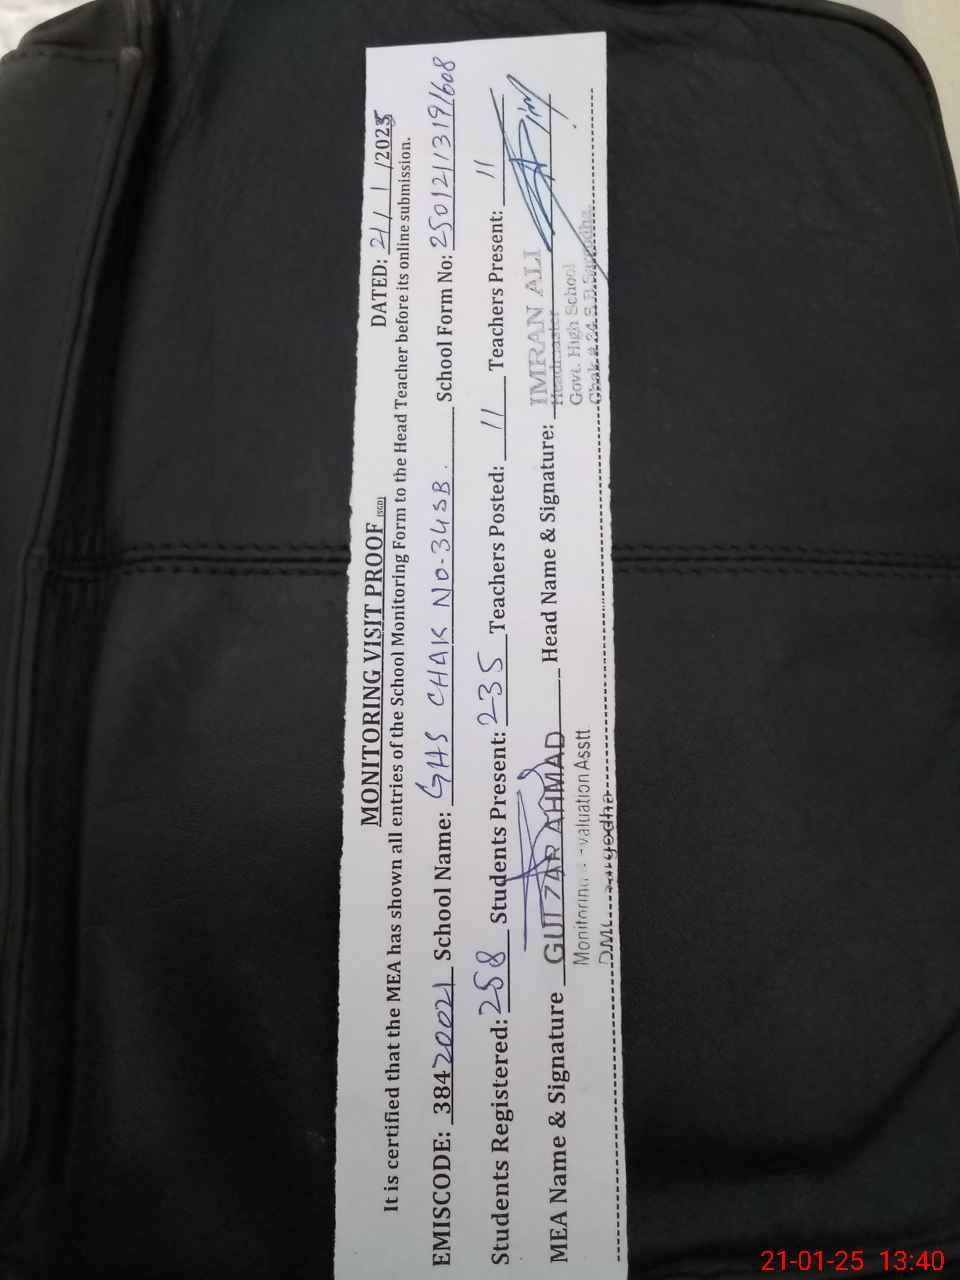 MONITORING VISIT PROOF (SGD) DATED: 21/1/2025
It is certified that the MEA has shown all entries of the School Monitoring Form to the Head Teacher before its online submission.
EMISCODE: 38420021 School Name: GHS CHAK NO-34SB. School Form No: 25012113191608
Students Registered: 258 Students Present: 235 Teachers Posted: 11 Teachers Present: 11
MEA Name & Signature GULZAR AHMAD Head Name & Signature: IMRAN ALI
Monitoring Evaluation Asstt Headmaster
Govt. High School
Sargodha Chak # 34 S.B. Sargodha
21-01-25 13:40